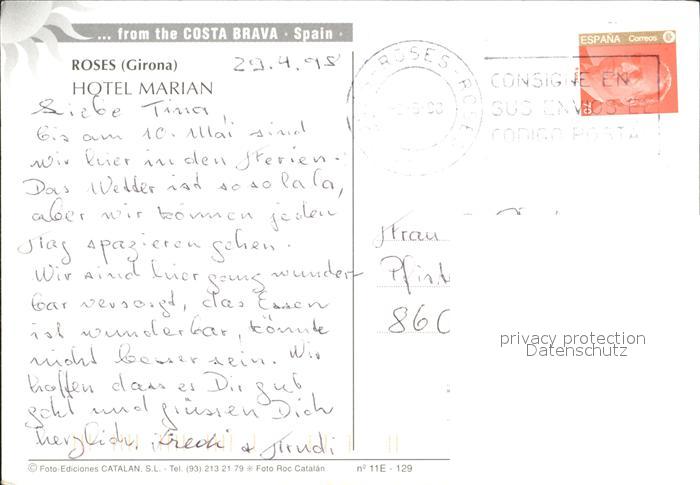 ... from the COSTA BRAVA · Spain ·
ROSES (Girona)
HOTEL MARIAN
29.4.98
Liebe Tina,
bis am 10. Mai sind
wir hier in den Ferien.
Das Wetter ist so so lala,
aber wir können jeden
Tag spazieren gehen.
Wir sind hier ganz wunder-
bar versorgt, das Essen
ist wunderbar, könnte
nicht besser sein. Wir
hoffen dass es Dir gut
geht und grüssen Dich
herzlich. Fredi + Trudi
ESPAÑA Correos
ROSES - ROSES
CONSIGNE EN
SUS ENVIOS EL
CODIGO POSTA
Frau
Pfist
860
privacy protection
Datenschutz
© Foto-Ediciones CATALAN, S.L. - Tel. (93) 213 21 79 ✳ Foto Roc Catalán
nº 11E - 129